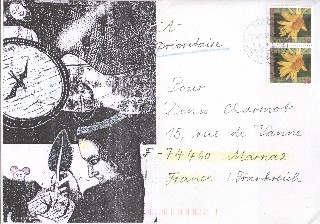 prioritaire
Pour
Denis Charmot
15, rue de Vanne
F-74460 Marnaz
France / Frankreich